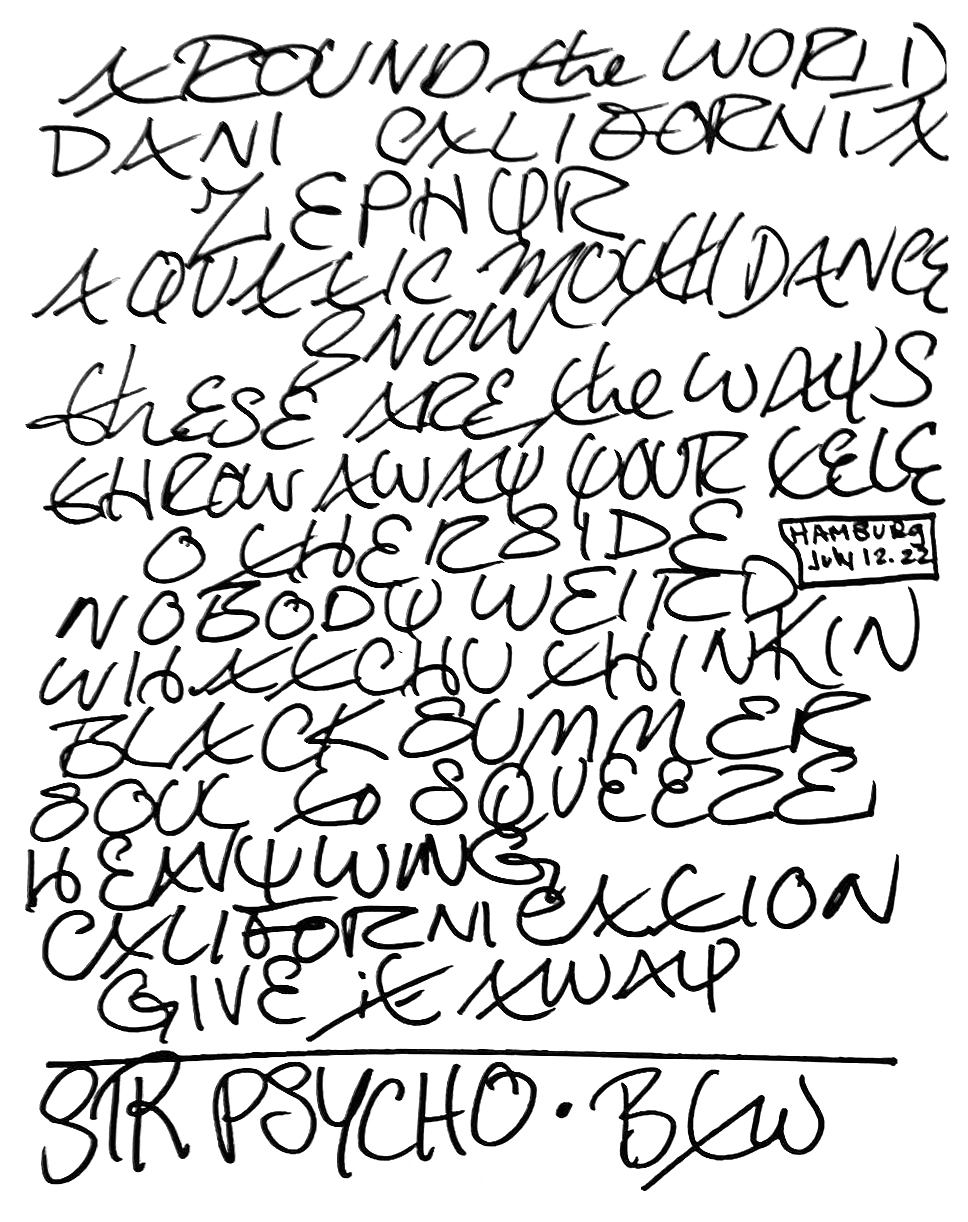 AROUND the WORLD
DANI CALIFORNIA
ZEPHYR
AQUATIC MOUTH DANCE
SNOW
thESE ARE the WAYS
THROW AWAY YOUR TELE
OTHERSIDE
HAMBURG
July 12.22
NOBODY WEIRD
WHATCHU THINKIN
BLACK SUMMER
SOUL TO SQUEEZE
HEAVY WING
CALIFORNICATION
GIVE it AWAY
STR PSYCHO · BTW